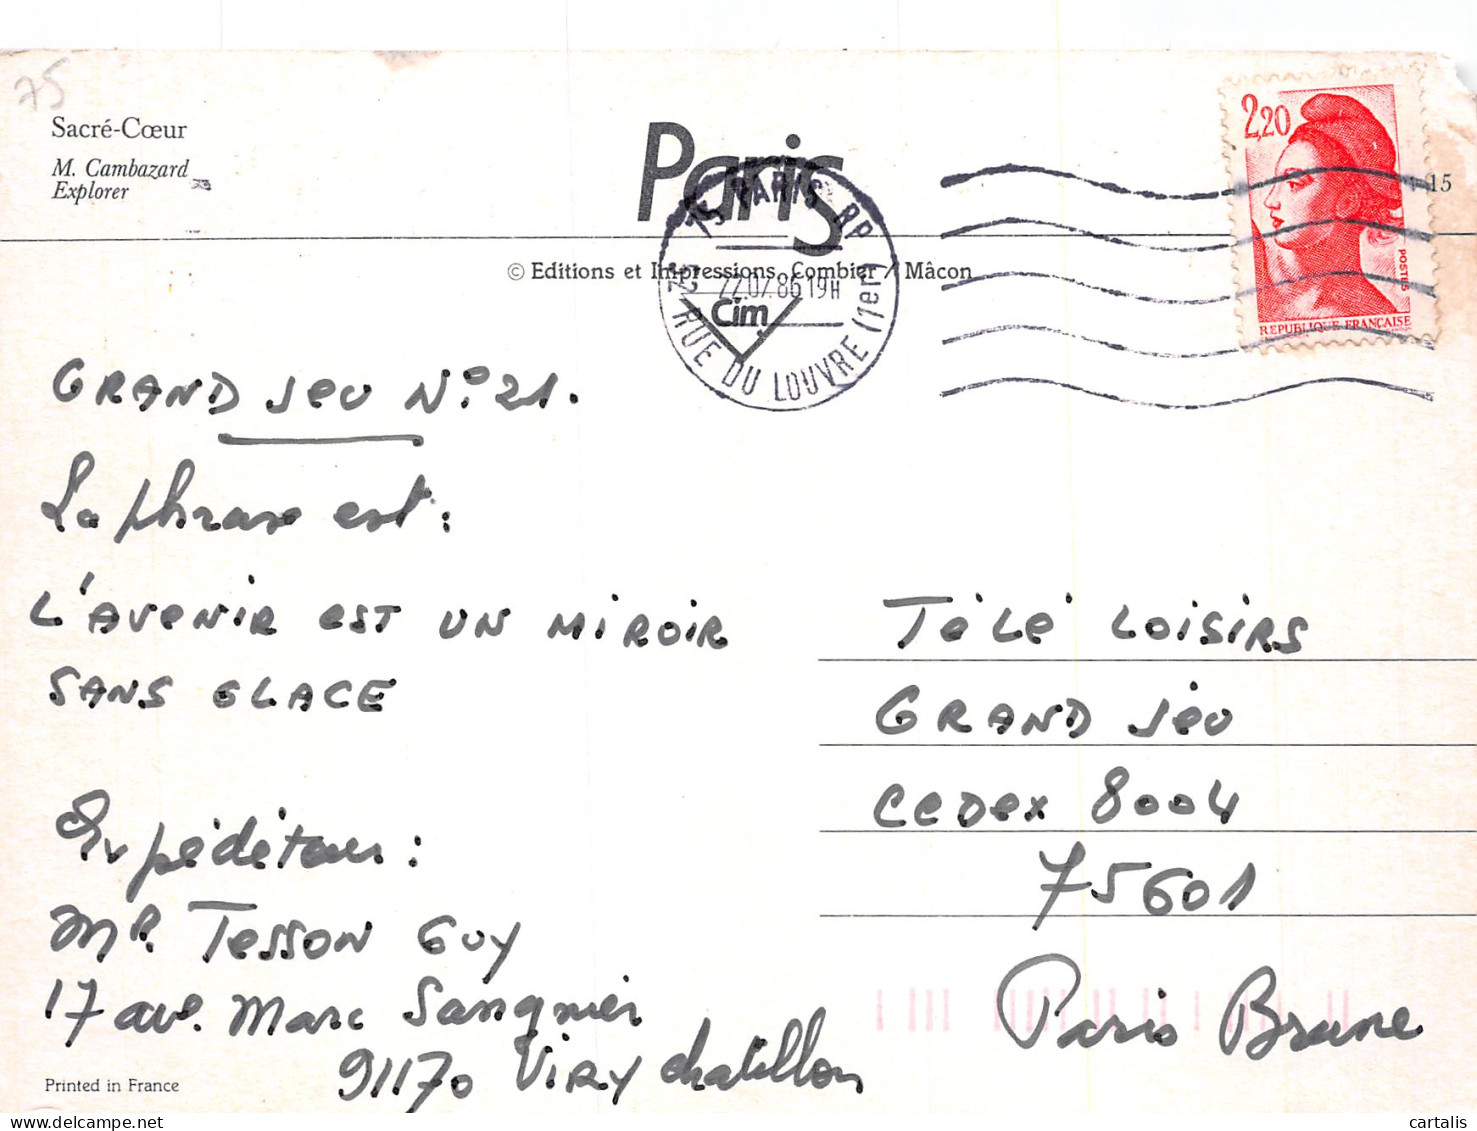 75
Sacré-Cœur
M. Cambazard
Explorer
Paris
15
2,20
POSTES
REPUBLIQUE FRANÇAISE
75 PARIS RP
22.07.86 19H
RUE DU LOUVRE (1er)
© Editions et Impressions Combier / Mâcon
Cim
GRAND JEU N° 21.
La phrase est :
L'AVENIR EST UN MIROIR
SANS GLACE
Expéditeur :
MR. TESSON GUY
17 ave. Marc Sangnier
91170 VIRY chatillon
TéLé LOISIRS
GRAND JEU
CEDEX 8004
75601
Paris Brune
Printed in France
cartalis